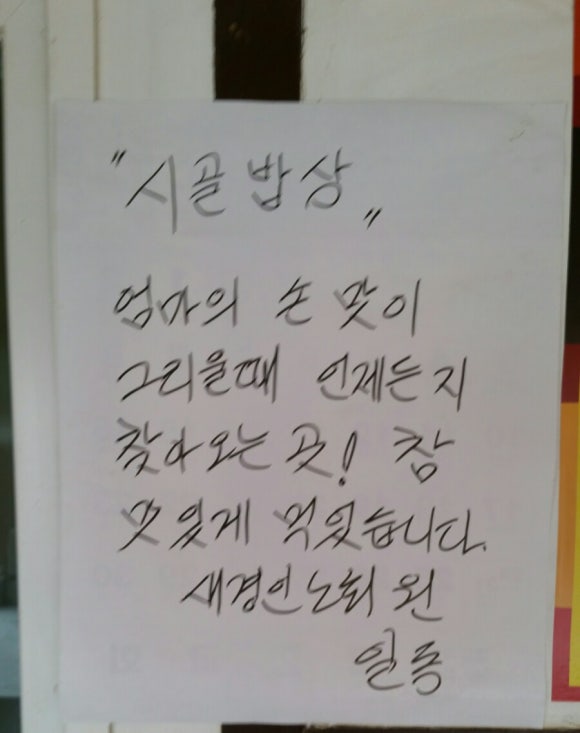 "시골밥상"
엄마의 손맛이
그리울때 언제든지
찾아오는 곳! 참
맛있게 먹었습니다.
새경인노회 원
일동